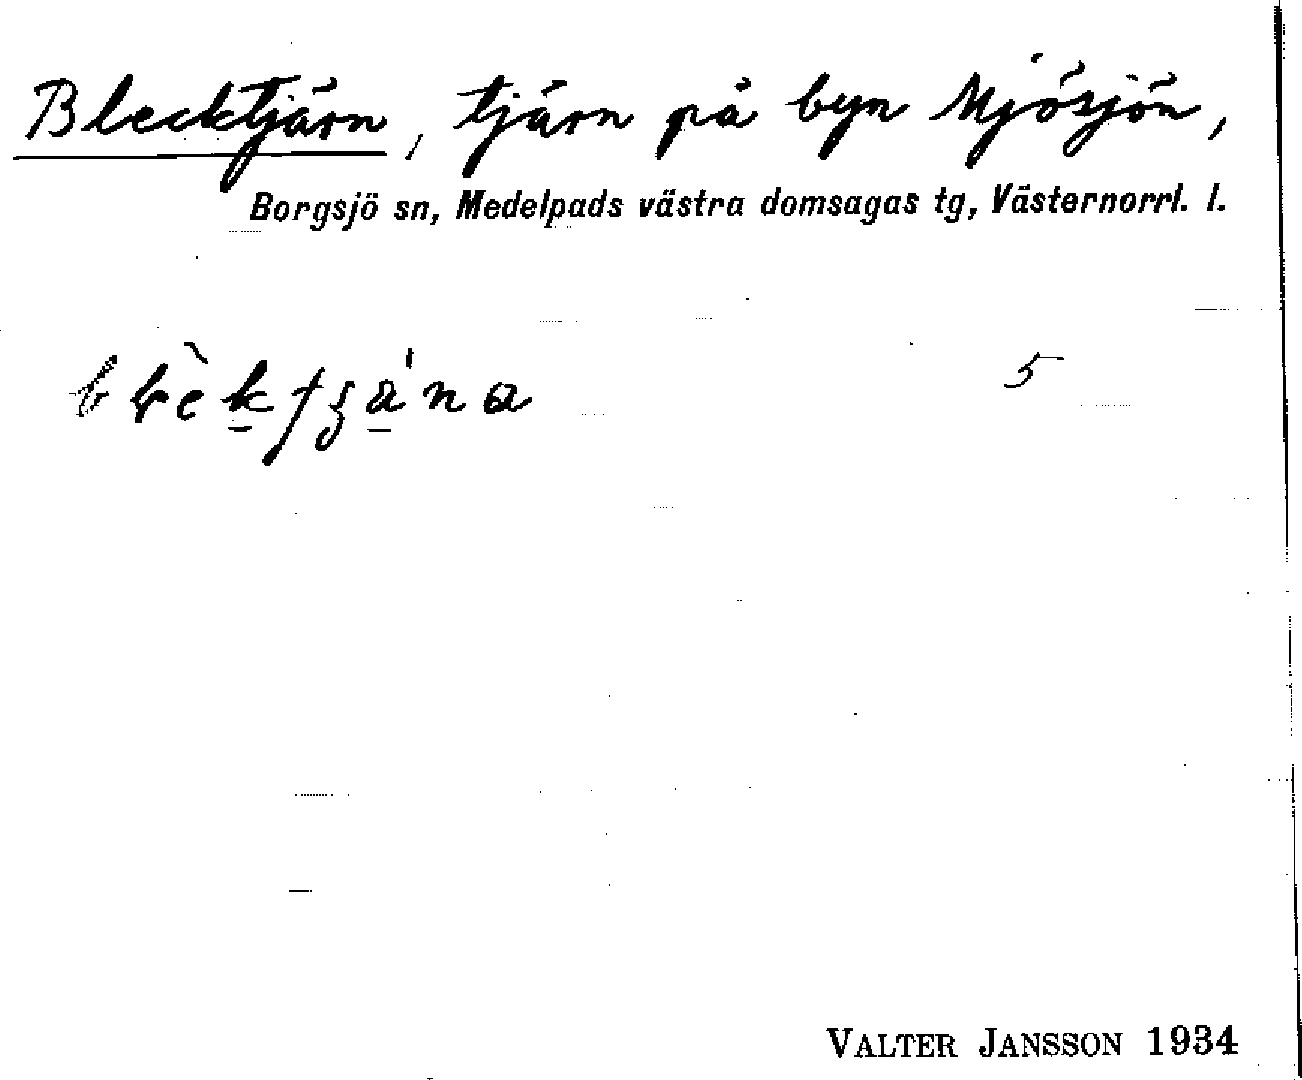 Blecktjärn, tjärn på byn Mjösjön,
Borgsjö sn, Medelpads västra domsagas tg, Västernorrl. l.
5
VALTER JANSSON 1934